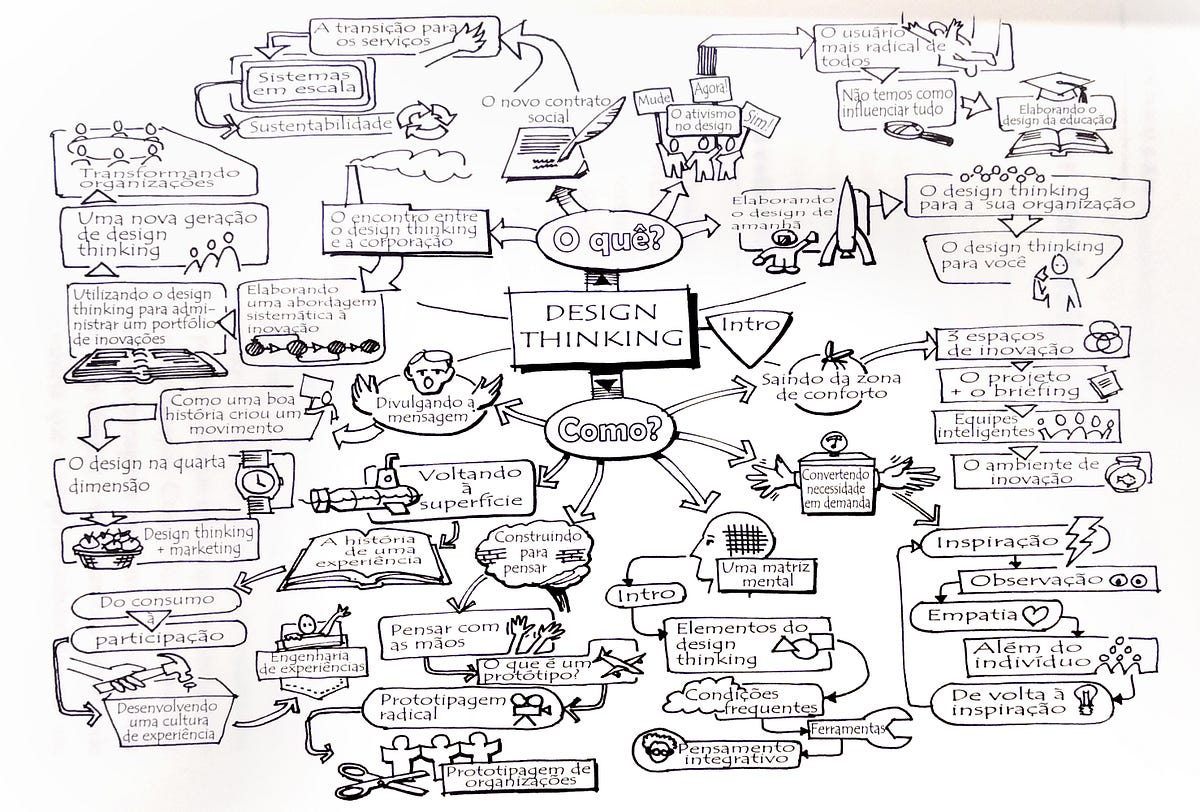 DESIGN
THINKING
Intro
O quê?
O novo contrato
social
A transição para
os serviços
Sistemas
em escala
Sustentabilidade
Mude!
Agora!
Sim!
O ativismo
no design
O usuário
mais radical de
todos
Não temos como
influenciar tudo
Elaborando o
design da educação
Elaborando
o design de
amanhã
O design thinking
para a sua organização
O design thinking
para você
O encontro entre
o design thinking
e a corporação
Elaborando
uma abordagem
sistemática à
inovação
Utilizando o design
thinking para admi-
nistrar um portfólio
de inovações
Uma nova geração
de design
thinking
Transformando
organizações
Como?
Saindo da zona
de conforto
3 espaços
de inovação
O projeto
+ o briefing
Equipes
inteligentes
O ambiente de
inovação
Convertendo
necessidade
em demanda
Inspiração
Observação
Empatia
Além do
indivíduo
De volta à
inspiração
Uma matriz
mental
Intro
Elementos do
design
thinking
Condições
frequentes
Ferramentas
Pensamento
integrativo
Construindo
para
pensar
Pensar com
as mãos
O que é um
protótipo?
Prototipagem
radical
Prototipagem de
organizações
Voltando
à
superfície
A história
de uma
experiência
Do consumo
à
participação
Desenvolvendo
uma cultura
de experiência
Engenharia
de experiências
Divulgando a
mensagem
Como uma boa
história criou um
movimento
O design na quarta
dimensão
Design thinking
+ marketing